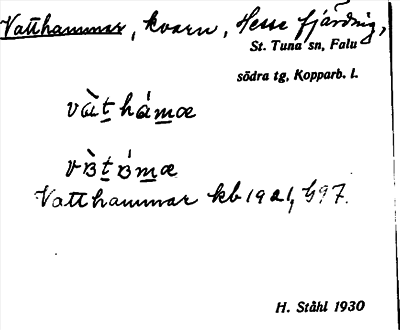 Vatthammar, kvarn, Hesse fjärdnig,
St. Tuna sn, Falu
södra tg, Kopparb. l.
vὰt̲hám̲æ
vʙ̀t̲ʙ́m̲æ
Vatthammar kb 1921, 597.
H. Ståhl 1930